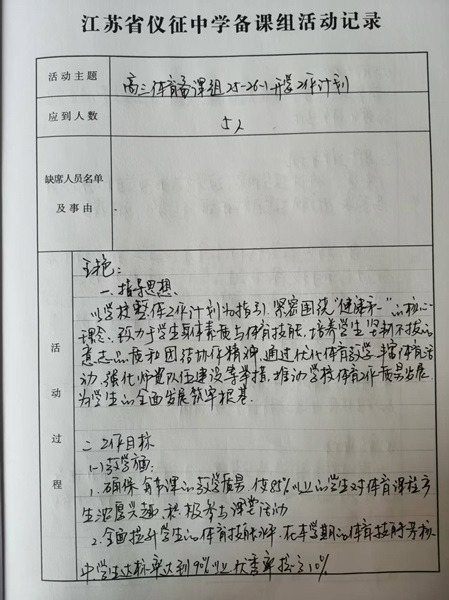 江苏省仪征中学备课组活动记录
活动主题
高三体育备课组25-26-1开学工作计划
应到人数
5人
缺席人员名单
及事由
活动过程
主艳:
一.指导思想
以学校整体工作计划为指引.紧密围绕"健康第一"的核心
理念.致力于学生身体素质与体育技能.培养学生坚韧不拔的
意志品质和团结协作精神.通过优化体育教学.丰富体育活
动.强化师资队伍建设等举措.推动学校体育工作质量发展
为学生的全面发展筑牢根基.
二.工作目标
(一)教学方面:
1.确保每节课的教学质量,使85%以上的学生对体育课程产
生浓厚兴趣.积极参与课堂活动
2.全面提升学生的体育技能水平.在本学期的体育技能考核
中学生达标率达到90%以上.优秀率提高10%